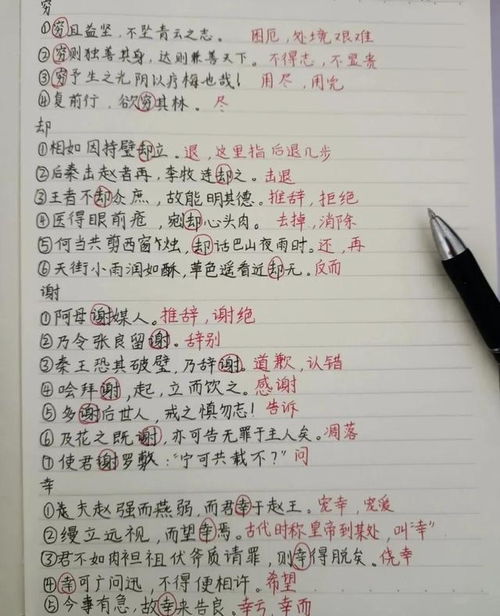 穷
①穷且益坚，不坠青云之志。 困厄，处境艰难
②穷则独善其身，达则兼善天下。不得志，不显贵
③穷予生之光阴以疗梅也哉！ 用尽，用完
④复前行，欲穷其林。 尽
却
①相如因持璧却立。退，这里指后退几步
②后秦击赵者再，李牧连却之。击退
③王者不却众庶，故能明其德。推辞，拒绝
④医得眼前疮，剜却心头肉。去掉，消除
⑤何当共剪西窗烛，却话巴山夜雨时。还，再
⑥天街小雨润如酥，草色遥看近却无。反而
谢
①阿母谢媒人。推辞，谢绝
②乃令张良留谢。辞别
③秦王恐其破璧，乃辞谢。道歉，认错
④哙拜谢，起，立而饮之。感谢
⑤多谢后世人，戒之慎勿忘！告诉
⑥及花之既谢，亦可告无罪于主人矣。凋落
⑦使君谢罗敷："宁可共载不？"问
幸
①夫赵强而燕弱，而君幸于赵王。宠幸，宠爱
②缦立远视，而望幸焉。古代时称皇帝到某处，叫"幸"
③君不如肉袒伏斧质请罪，则幸得脱矣。侥幸
④幸可广问讯，不得便相许。希望
⑤今事有急，故幸来告良。幸亏，幸而